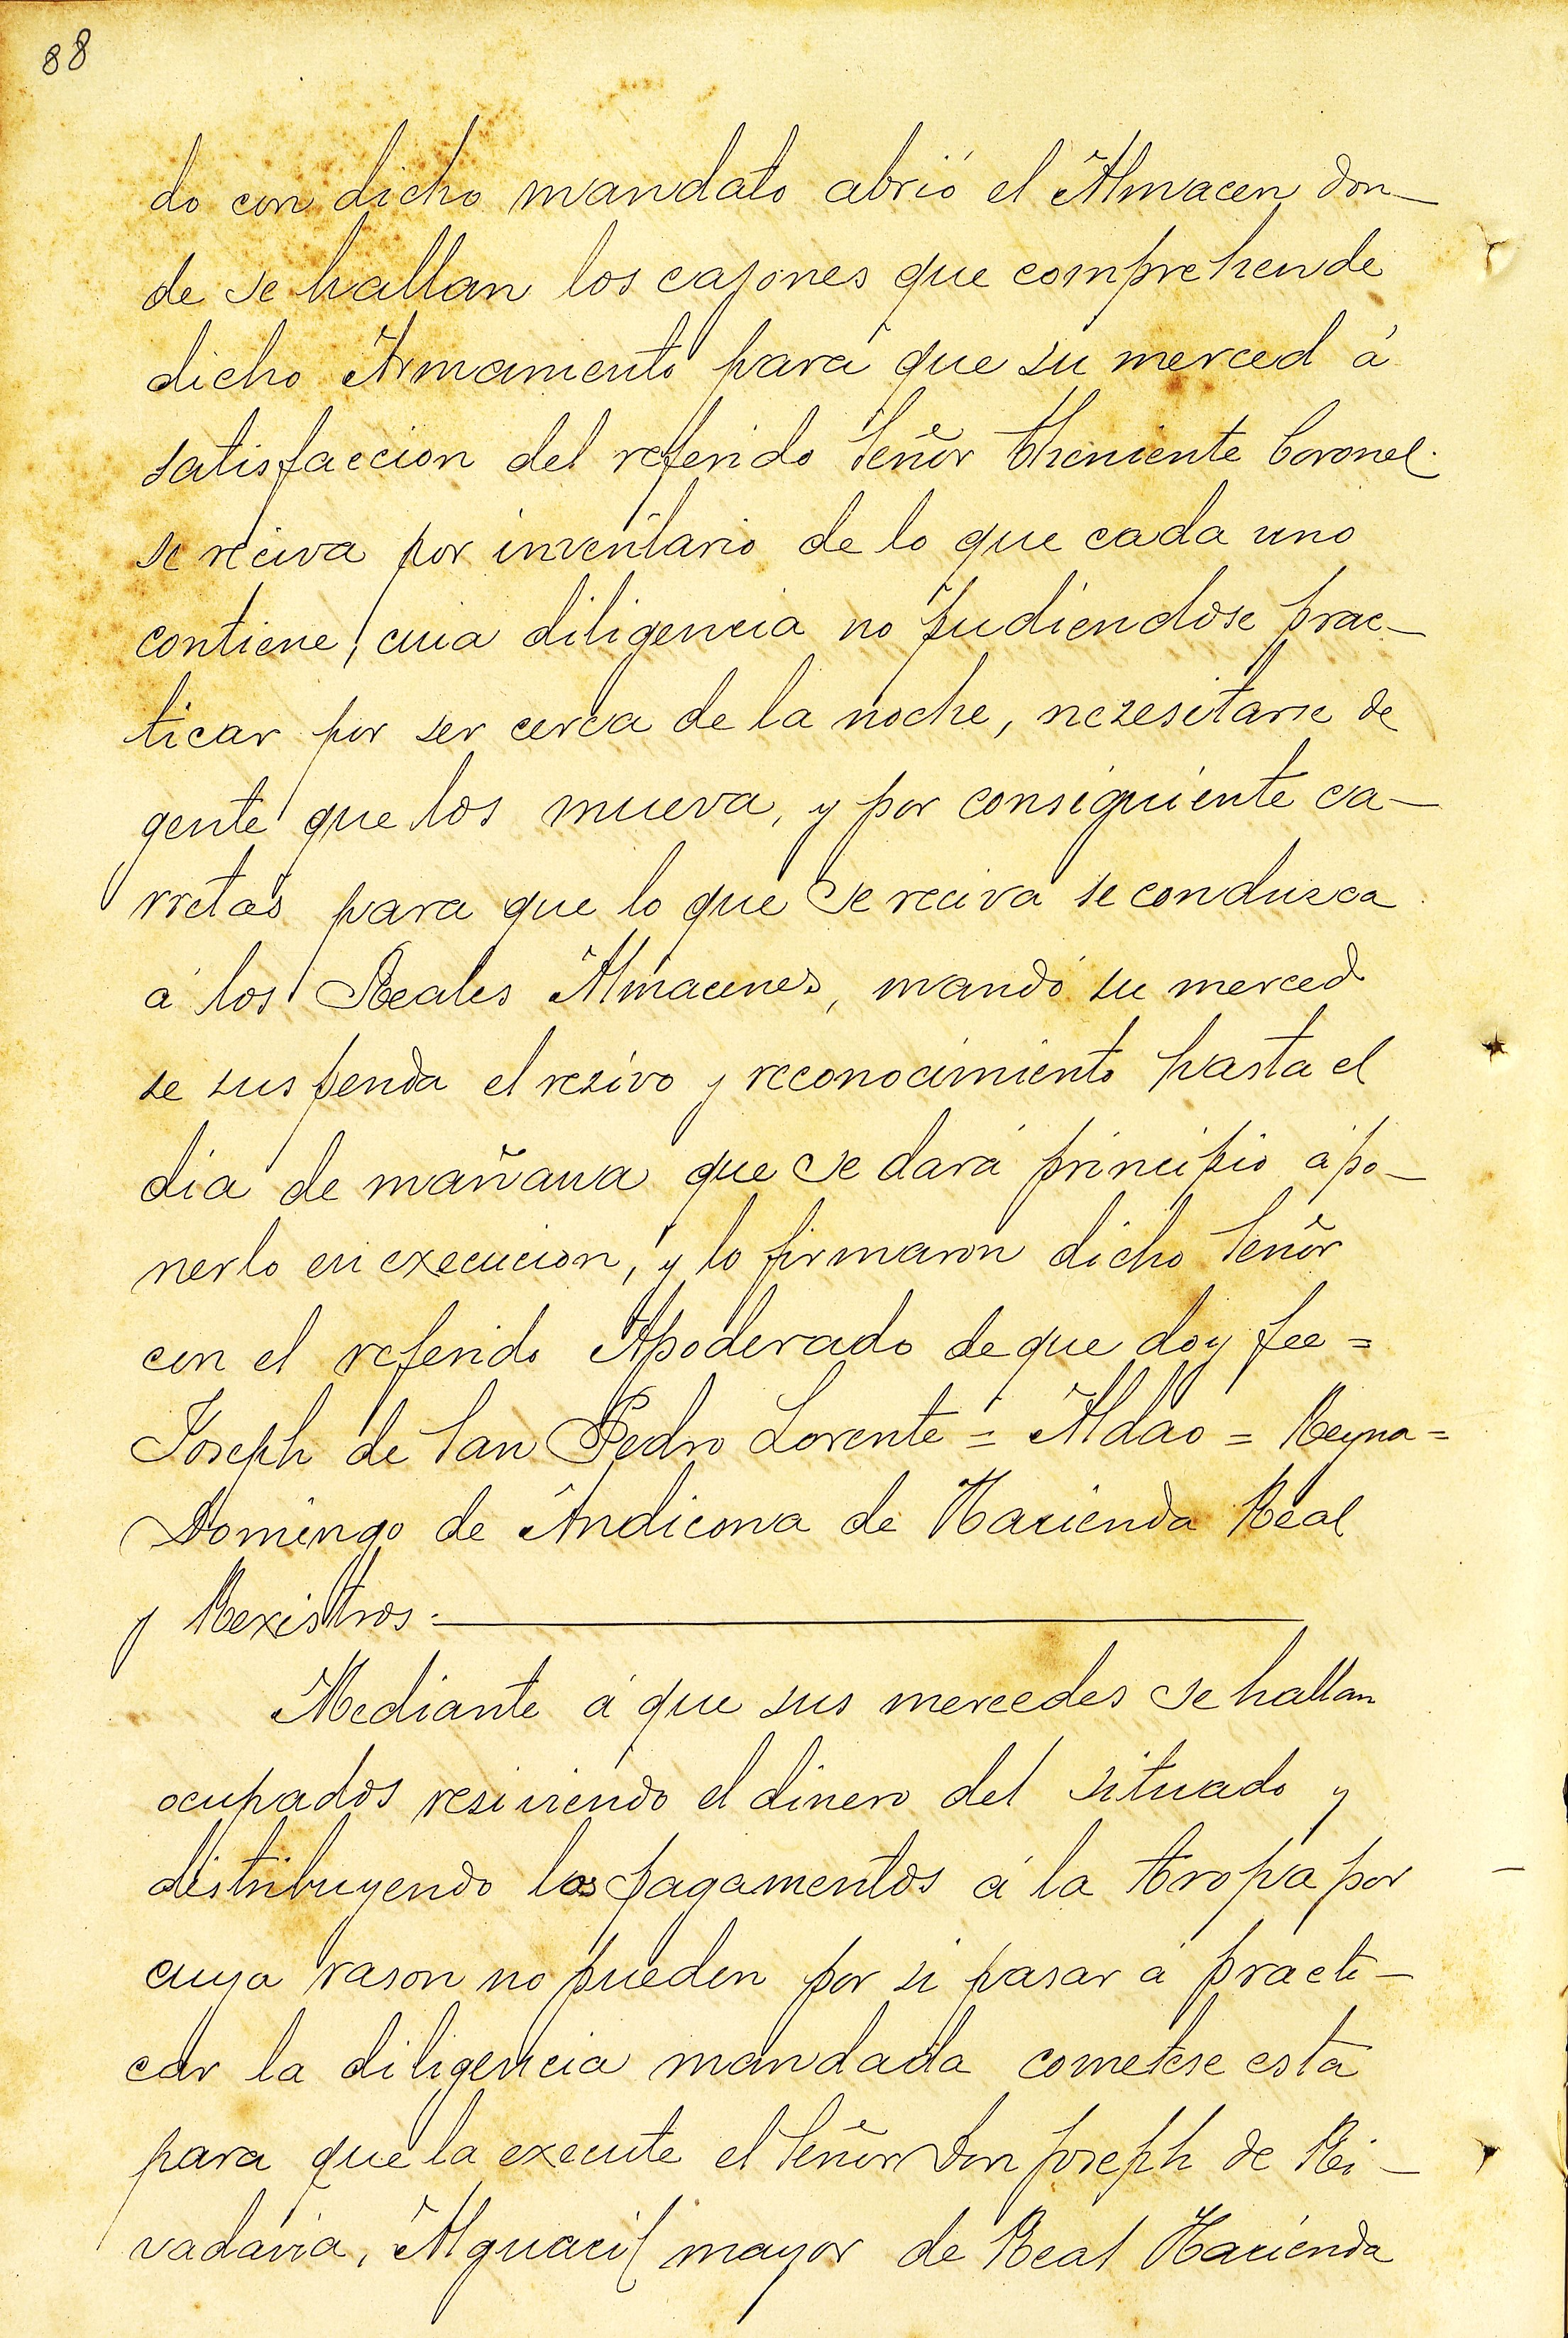 88
do con dicho mandato abrió el Almacen don-
de se hallan los cajones que comprehende
dicho Armamento para que su merced á
satisfaccion del referido Señor Theniente Coronel
se reciva por inventario de lo que cada uno
contiene, cuia diligencia no pudiendose prac-
ticar por ser cerca de la noche, nezesitarse de
gente que los mueva, y por consiguiente ca-
rretas para que lo que se reciva se conduzca
á los Reales Almacenes, mandó su merced
se suspenda el rezivo y reconocimiento hasta el
dia de mañana que se dará principio á po-
nerlo en execucion, y lo firmaron dicho Señor
con el referido Apoderado de que doy fee =
Joseph de San Pedro Lorente = Aldao = Reyna =
Domingo de Andicona de Hacienda Real
y Rexistros.
Mediante á que sus mercedes se hallan
ocupados resiviendo el dinero del situado y
distribuyendo los pagamentos á la tropa por
cuya rason no pueden por si pasar á practi-
car la diligencia mandada cometese esta
para que la execute el Señor Don Joseph de Ri-
vadavia, Alguacil mayor de Real Hacienda